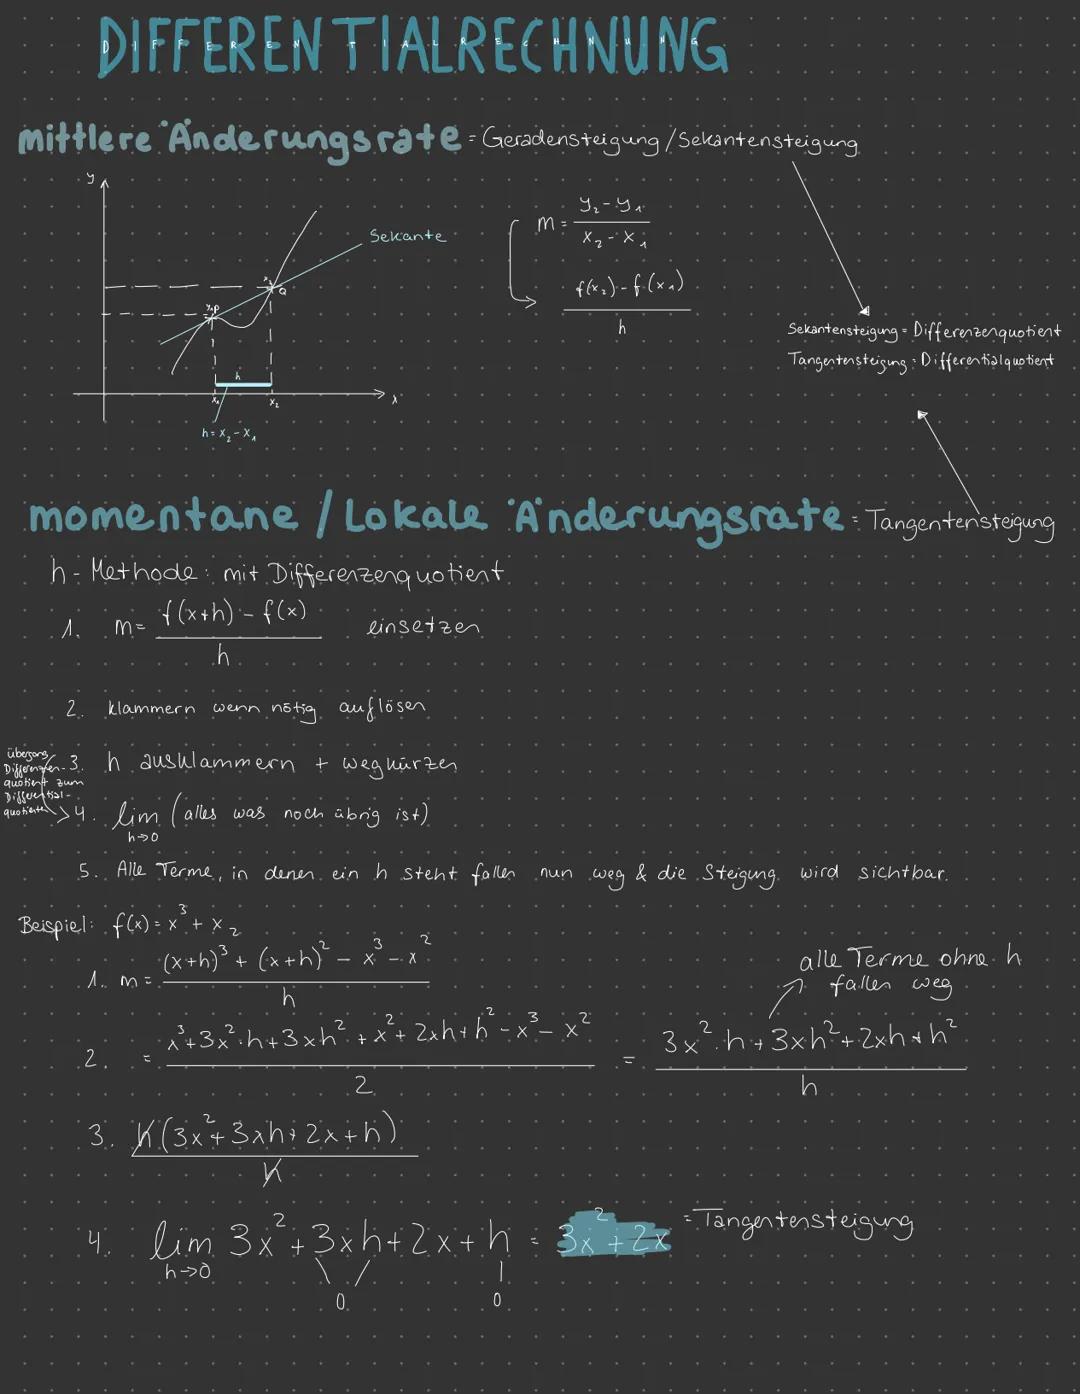 DIFFERENTIALRECHNUNG
mittlere Änderungsrate = Geradensteigung / Sekantensteigung
y
Sekante
m = (y₂ - y₁)/(x₂ - x₁)
(f(x₂) - f(x₁))/h
Q
P
h
x₁ x₂ x
h = x₂ - x₁
Sekantensteigung = Differenzenquotient
Tangentensteigung = Differentialquotient
momentane / Lokale Änderungsrate = Tangentensteigung
h - Methode: mit Differenzenquotient
1. m = (f(x+h) - f(x))/h einsetzen
2. klammern wenn nötig auflösen
3. h ausklammern + wegkürzen
übergang
Differenzen-
quotient zum
Differential-
quotienten
4. lim h→0 (alles was noch übrig ist)
5. Alle Terme, in denen ein h steht fallen nun weg & die Steigung wird sichtbar.
Beispiel: f(x) = x³ + x₂
1. m = ((x+h)³ + (x+h)² - x³ - x²)/h
alle Terme ohne h
fallen weg
2. = (x³ + 3x²·h + 3xh² + x² + 2xh + h² - x³ - x²)/2 = (3x²·h + 3xh² + 2xh + h²)/h
3. h(3x² + 3xh + 2x + h)/h
4. lim h→0 3x² + 3xh + 2x + h = 3x² + 2x = Tangentensteigung
0 0